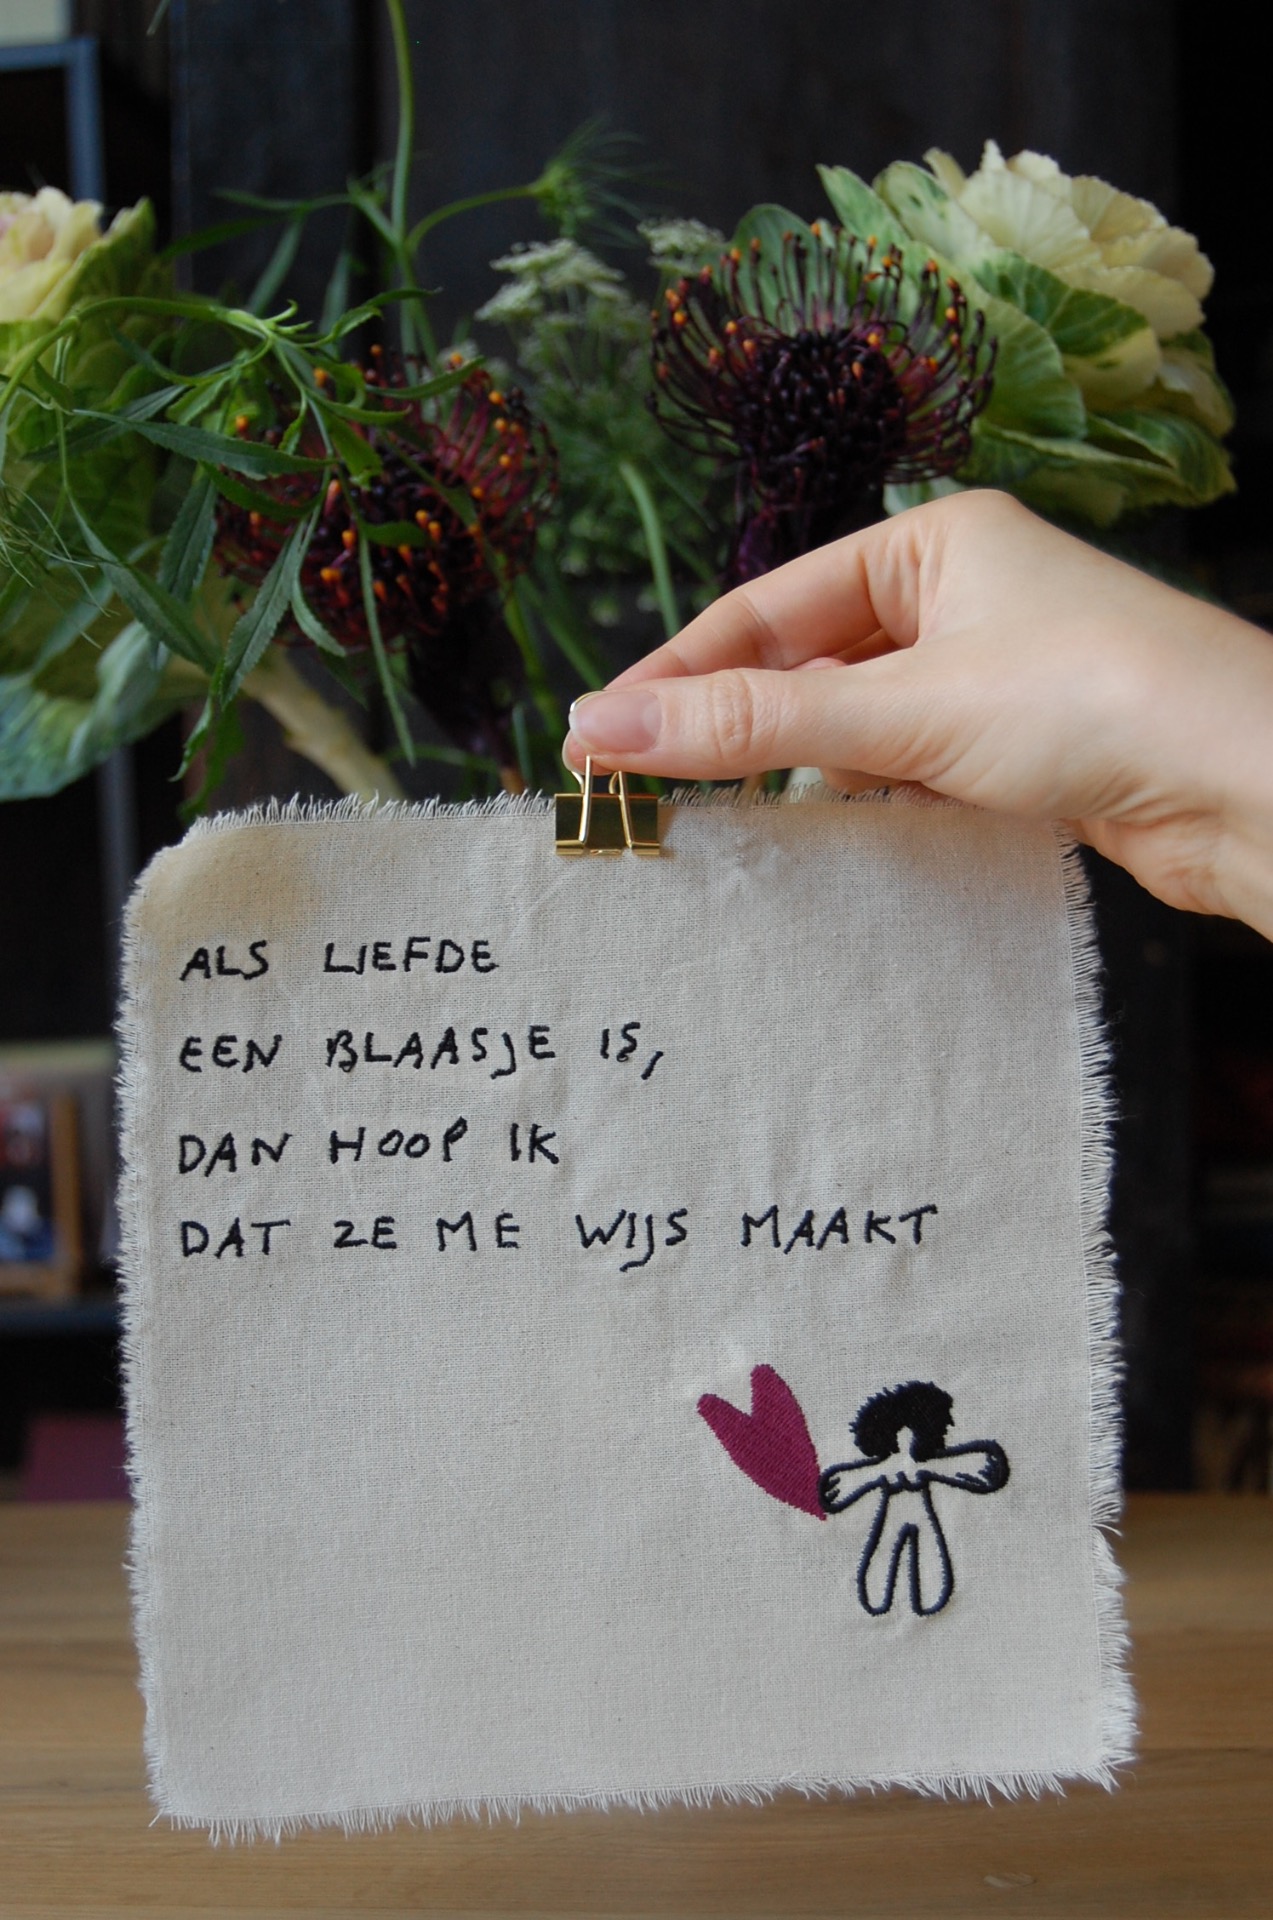 ALS LIEFDE
EEN BLAASJE IS,
DAN HOOP IK
DAT ZE ME WIJS MAAKT